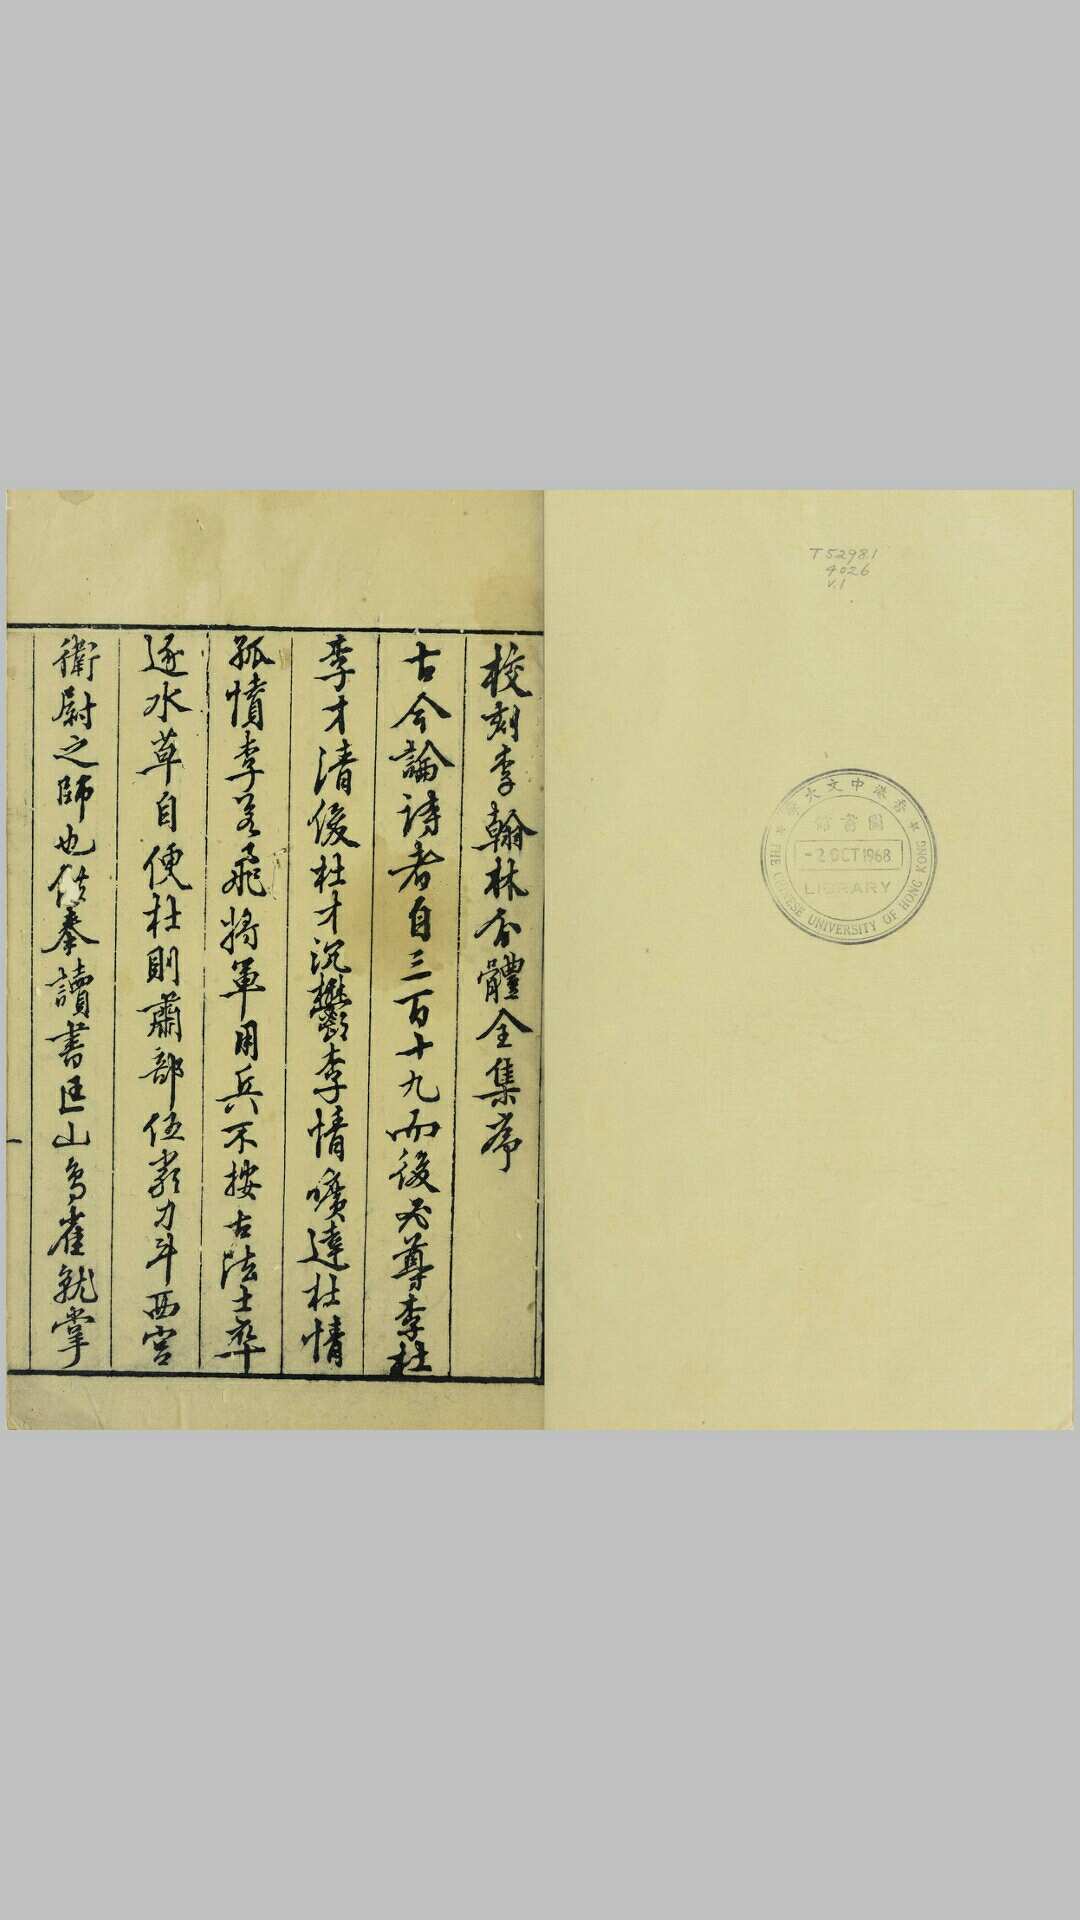 T5298.1
4026
v.1
香港中文大學
圖書館
-2 OCT 1968
LIBRARY
THE CHINESE UNIVERSITY OF HONG KONG
校刻李翰林分體全集序
古今論詩者自三百十九而後必尊李杜
李才清俊杜才沉鬱李情曠達杜情
孤憤李若飛將軍用兵不按古法士卒
逐水草自便杜則肅部伍嚴刀斗西宮
衛尉之師也供奉讀書匡山鳥雀就掌